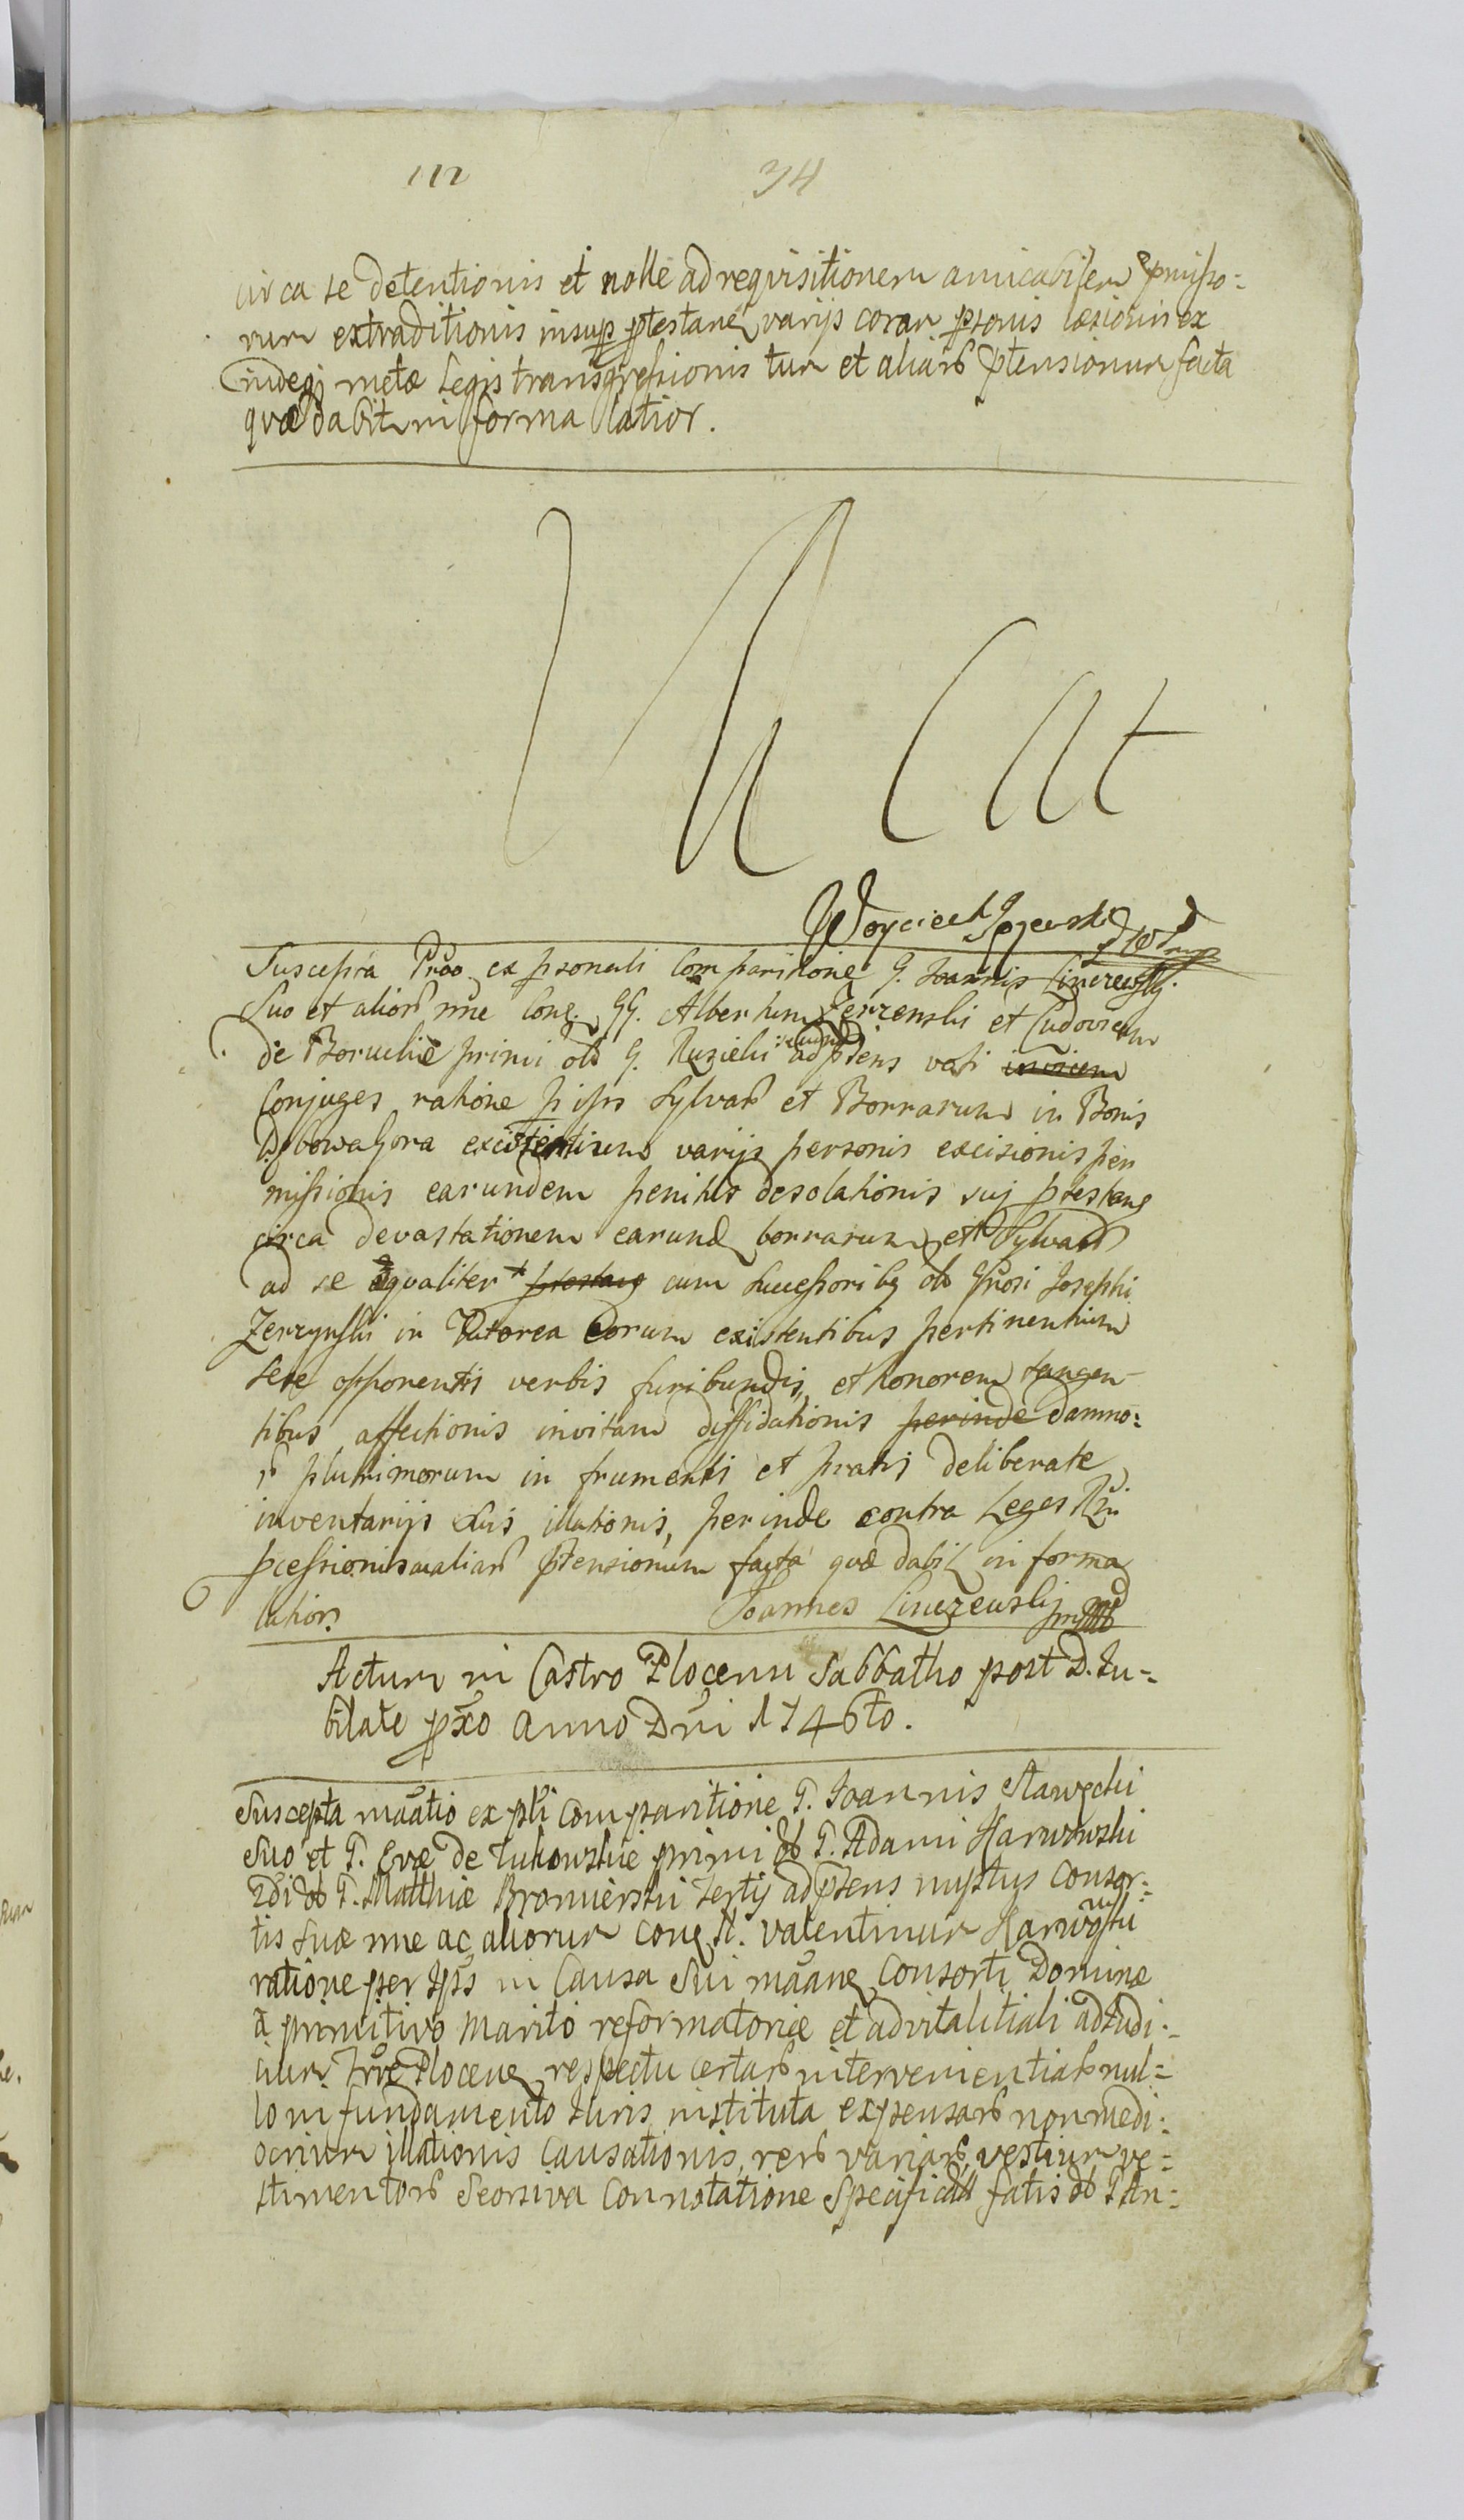 112 34
circa se detentionis et nolle ad requisitionem amicabilem pmisso-
rum extraditionis insup ptestane varijs coram psonis læsionis ex
indeq metæ Legis transgressionis tum et aliarb ptensionum facta
quæ dabit in forma latior.
Vacat
Woyciech
Suscepta Proo ex psonali Comparitione G. Joannis Linczewskj
Suo et aliorb nne Cone. GG. Albertum Zerzenski et Ludovicam
de Boruckie primi olb G. Ruzieki secundi ad ptens voti inviem
Conjuges ratione p ipss Sylvarb et Borrarum in Bonis
Dębowagora existentium varijs personis excisionis per
missionis earundem penitus desolationis suj ptestane
circa devastationem earund borrarum et Sylvarb
ad se æqualiter ptestane cum successoribq olb Grosi Josephi
Zerzynski in Tutorea Eorum existentibus pertinentium
sese opponentis verbis furibundis, et honorem tangen-
tibus affectionis invitam diffidationis perinde damno-
rb plurimorum in frumentis et pratis deliberate
inventarijs suis illationis, perinde contra Leges Rni
pcessionis acaliarb ptensionum facta quæ dabit in forma
latiori
Joannes Linczewskj mp
Actum in Castro Plocensi Sabbatho post D. Ju-
bilate pxo Anno Dni 1746to.
Suscepta mãatio ex pli Comparitione G. Joannis Sławęcki
Suo et G. Evæ de Lukowskie primi olb G. Adami Karwowski
2di olb G. Matthiæ Bromierski Tertij ad ptens nuptus Consor-
tis suæ nne ac aliorum Cone N. Valentinum Karwowski
ratione per Ipss in Causa sui mãane Consorti Dominæ
a primitivo Marito reformatoriæ et advitalitiali ad Judi-
cium Trre Plocene respectu certarb intervenientiarb nul-
lo in fundamento Juris instituta expensarb non medi-
ocrium illationis Causationis, rerb variarb, vestium ve-
stimentorb Seorsiva Connotatione Specificatt fatis olb G An-